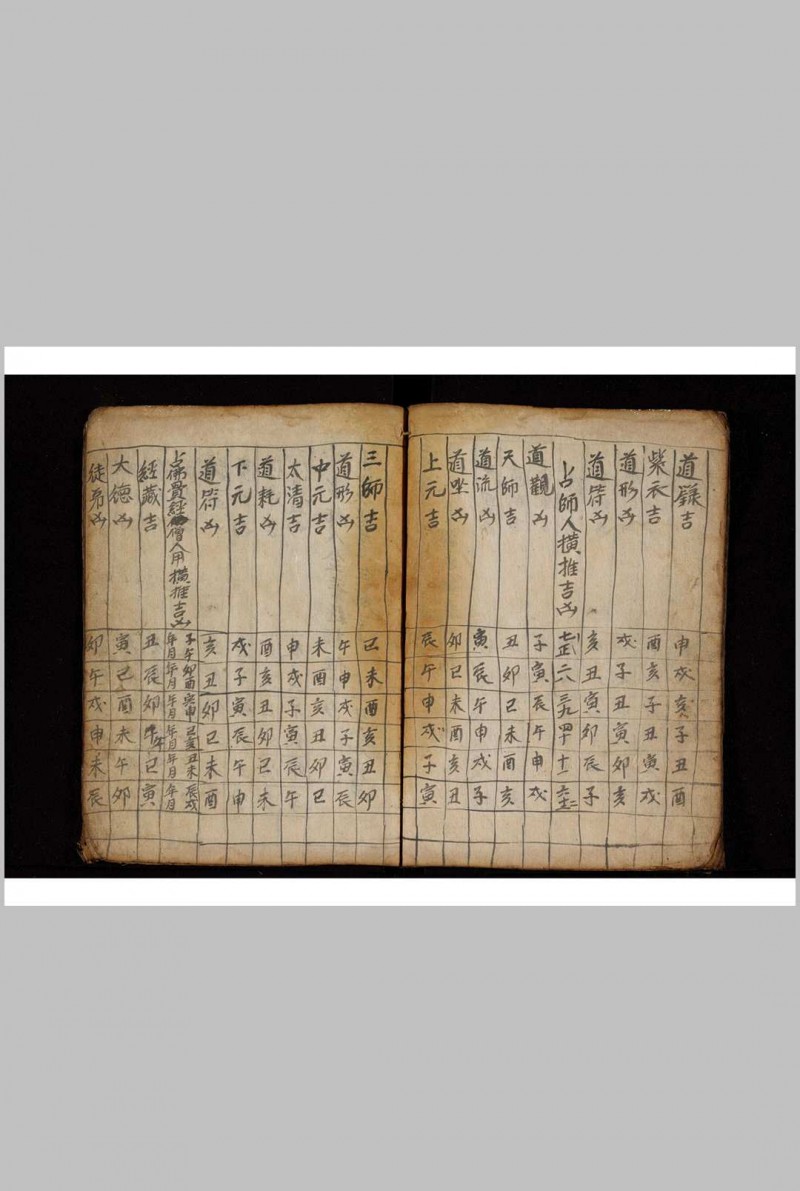 道籙吉 申 戌 亥 子 丑 酉
紫衣吉 酉 亥 子 丑 寅 戌
道形凶 戌 子 丑 寅 卯 亥
道符凶 亥 丑 寅 卯 辰 子
占師人横推吉凶 二八 三九 四十 十一
道觀凶 子 寅 辰 午 申 戌
天師吉 丑 卯 巳 未 酉 亥
道流凶 寅 辰 午 申 戌 子
道𫝶凶 卯 巳 未 酉 亥 丑
上元吉 辰 午 申 戌 子 寅
三師吉 巳 未 酉 亥 丑 卯
道形凶 午 申 戌 子 寅 辰
中元吉 未 酉 亥 丑 卯 巳
太清吉 申 戌 子 寅 辰 午
道耗凶 酉 亥 丑 卯 巳 未
下元吉 戌 子 寅 辰 午 申
道符凶 亥 丑 卯 巳 未 酉
占佛貫經僧人用横推吉凶 子午年月 卯酉年月 寅申年月 巳亥年月 丑未年月 辰戌年月
經藏吉 丑 辰 卯 午 巳 寅
大德凶 寅 巳 酉 未 午 卯
徒弟凶 卯 午 戌 申 未 辰